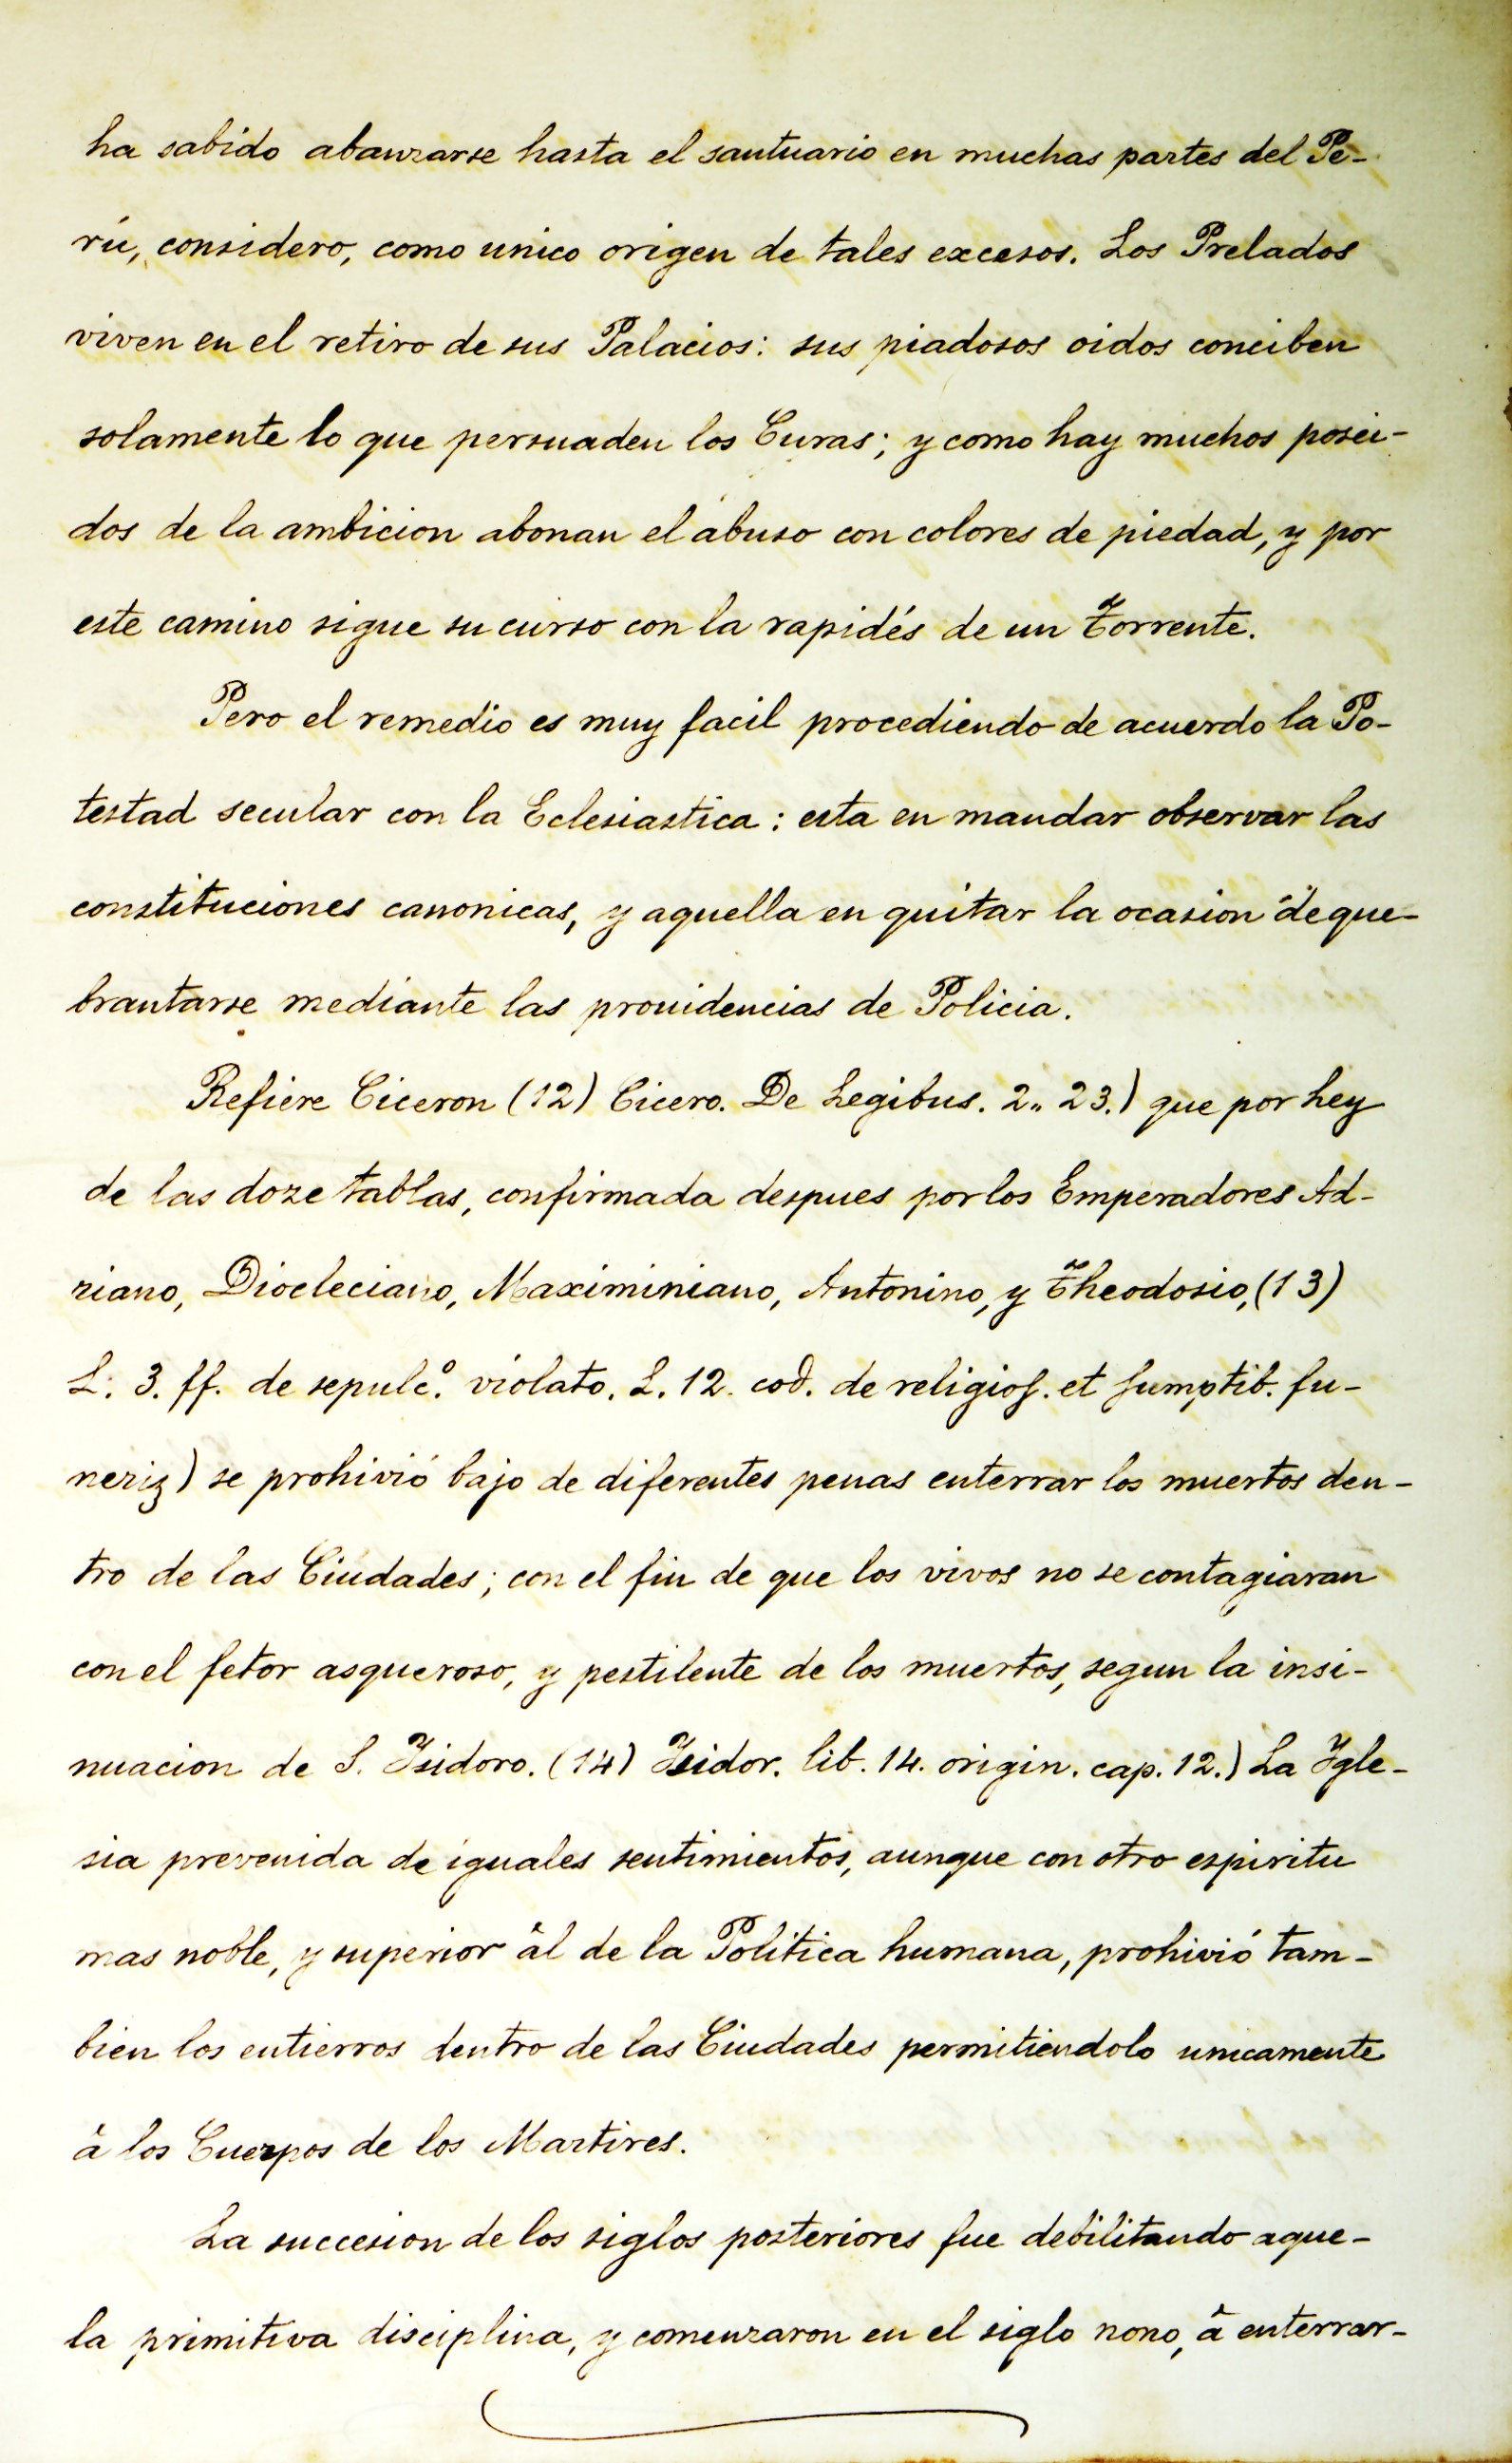 ha sabido abanzarse hasta el santuario en muchas partes del Pe-
rú, considero, como unico origen de tales excesos. Los Prelados
viven en el retiro de sus Palacios: sus piadosos oidos conciben
solamente lo que persuaden los Curas; y como hay muchos posei-
dos de la ambicion abonan el abuso con colores de piedad, y por
este camino sigue su curso con la rapidés de un Torrente.
Pero el remedio es muy facil procediendo de acuerdo la Po-
testad secular con la Eclesiastica: esta en mandar observar las
constituciones canonicas, y aquella en quitar la ocasion de que-
brantarse mediante las prouidencias de Policia.
Refiere Ciceron (12) Cicero. De Legibus. 2,, 23.) que por Ley
de las doze tablas, confirmada despues por los Emperadores Ad-
riano, Diocleciano, Maximiniano, Antonino, y Theodosio, (13)
L. 3. ff. de sepulc.º violato. L. 12. cod. de religios. et sumptib. fu-
neriz) se prohivió bajo de diferentes penas enterrar los muertos den-
tro de las Ciudades; con el fin de que los vivos no se contagiaran
con el fetor asqueroso, y pestilente de los muertos, segun la insi-
nuacion de S. Isidoro. (14) Isidor. lib. 14. origin. cap. 12.) La Ygle-
sia prevenida de iguales sentimientos, aunque con otro espiritu
mas noble, y superior âl de la Politica humana, prohivió tam-
bien los entierros dentro de las Ciudades permitiendolo unicamente
â los Cuerpos de los Martires.
La succesion de los siglos posteriores fue debilitando aque-
la primitiva disciplina, y comenzaron en el siglo nono, â enterrar-